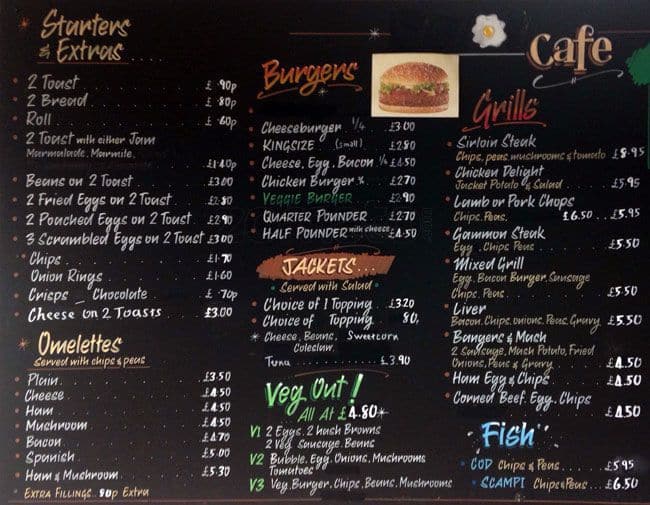 Starters
& Extras
2 Toast £ .90p
2 Bread £ .80p
Roll £ .60p
2 Toast with either Jam
Marmalade, Marmite. £1.40p
Beans on 2 Toast £3.00
2 Fried Eggs on 2 Toast £2.80
2 Poached Eggs on 2 Toast £2.90
3 Scrambled Eggs on 2 Toast £3.00
Chips £1.70
Onion Rings £1.60
Crisps _ Chocolate £ .70p
Cheese on 2 Toasts £3.00
Omelettes
Served with chips & peas
Plain £3.50
Cheese £4.50
Ham £4.50
Mushroom £4.50
Bacon £4.70
Spanish £5.00
Ham & Mushroom £5.30
Extra Fillings.. 80p Extra
Burgers
Cheeseburger 1/4 £3.00
KINGSIZE (small) £2.80
Cheese, Egg, Bacon 1/4 £4.50
Chicken Burger £2.70
VEGGIE BURGER £2.90
QUARTER POUNDER £2.70
HALF POUNDER with cheese £4.50
JACKETS...
Served with Salad
Choice of 1 Topping £3.20
Choice of Topping 80p
Cheese, Beans, Sweetcorn
Coleslaw.
Tuna £3.90
Veg Out!
All At £4.80
V1 2 Eggs, 2 hash Browns
2 Veg Sausage, Beans
V2 Bubble, Egg, Onions, Mushrooms
Tomatoes
V3 Veg, Burger, Chips, Beans, Mushrooms
Cafe
Grills
Sirloin Steak
Chips, peas, mushrooms & tomato £8.95
Chicken Delight
Jacket Potato & Salad £5.95
Lamb or Pork Chops
Chips, Peas. £6.50 ... £5.95
Gammon Steak
Egg, Chips Peas £5.50
Mixed Grill
Egg, Bacon Burger, Sausage
Chips, Peas £5.50
Liver
Bacon, Chips, onions, Peas, Gravy £5.50
Bangers & Mash
2 Sausage, Mash Potato, Fried
Onions, Peas & Gravy £4.50
Ham Egg & Chips £4.50
Corned Beef, Egg, Chips
£4.50
Fish
COD Chips & Peas £5.95
SCAMPI Chips & Peas £6.50